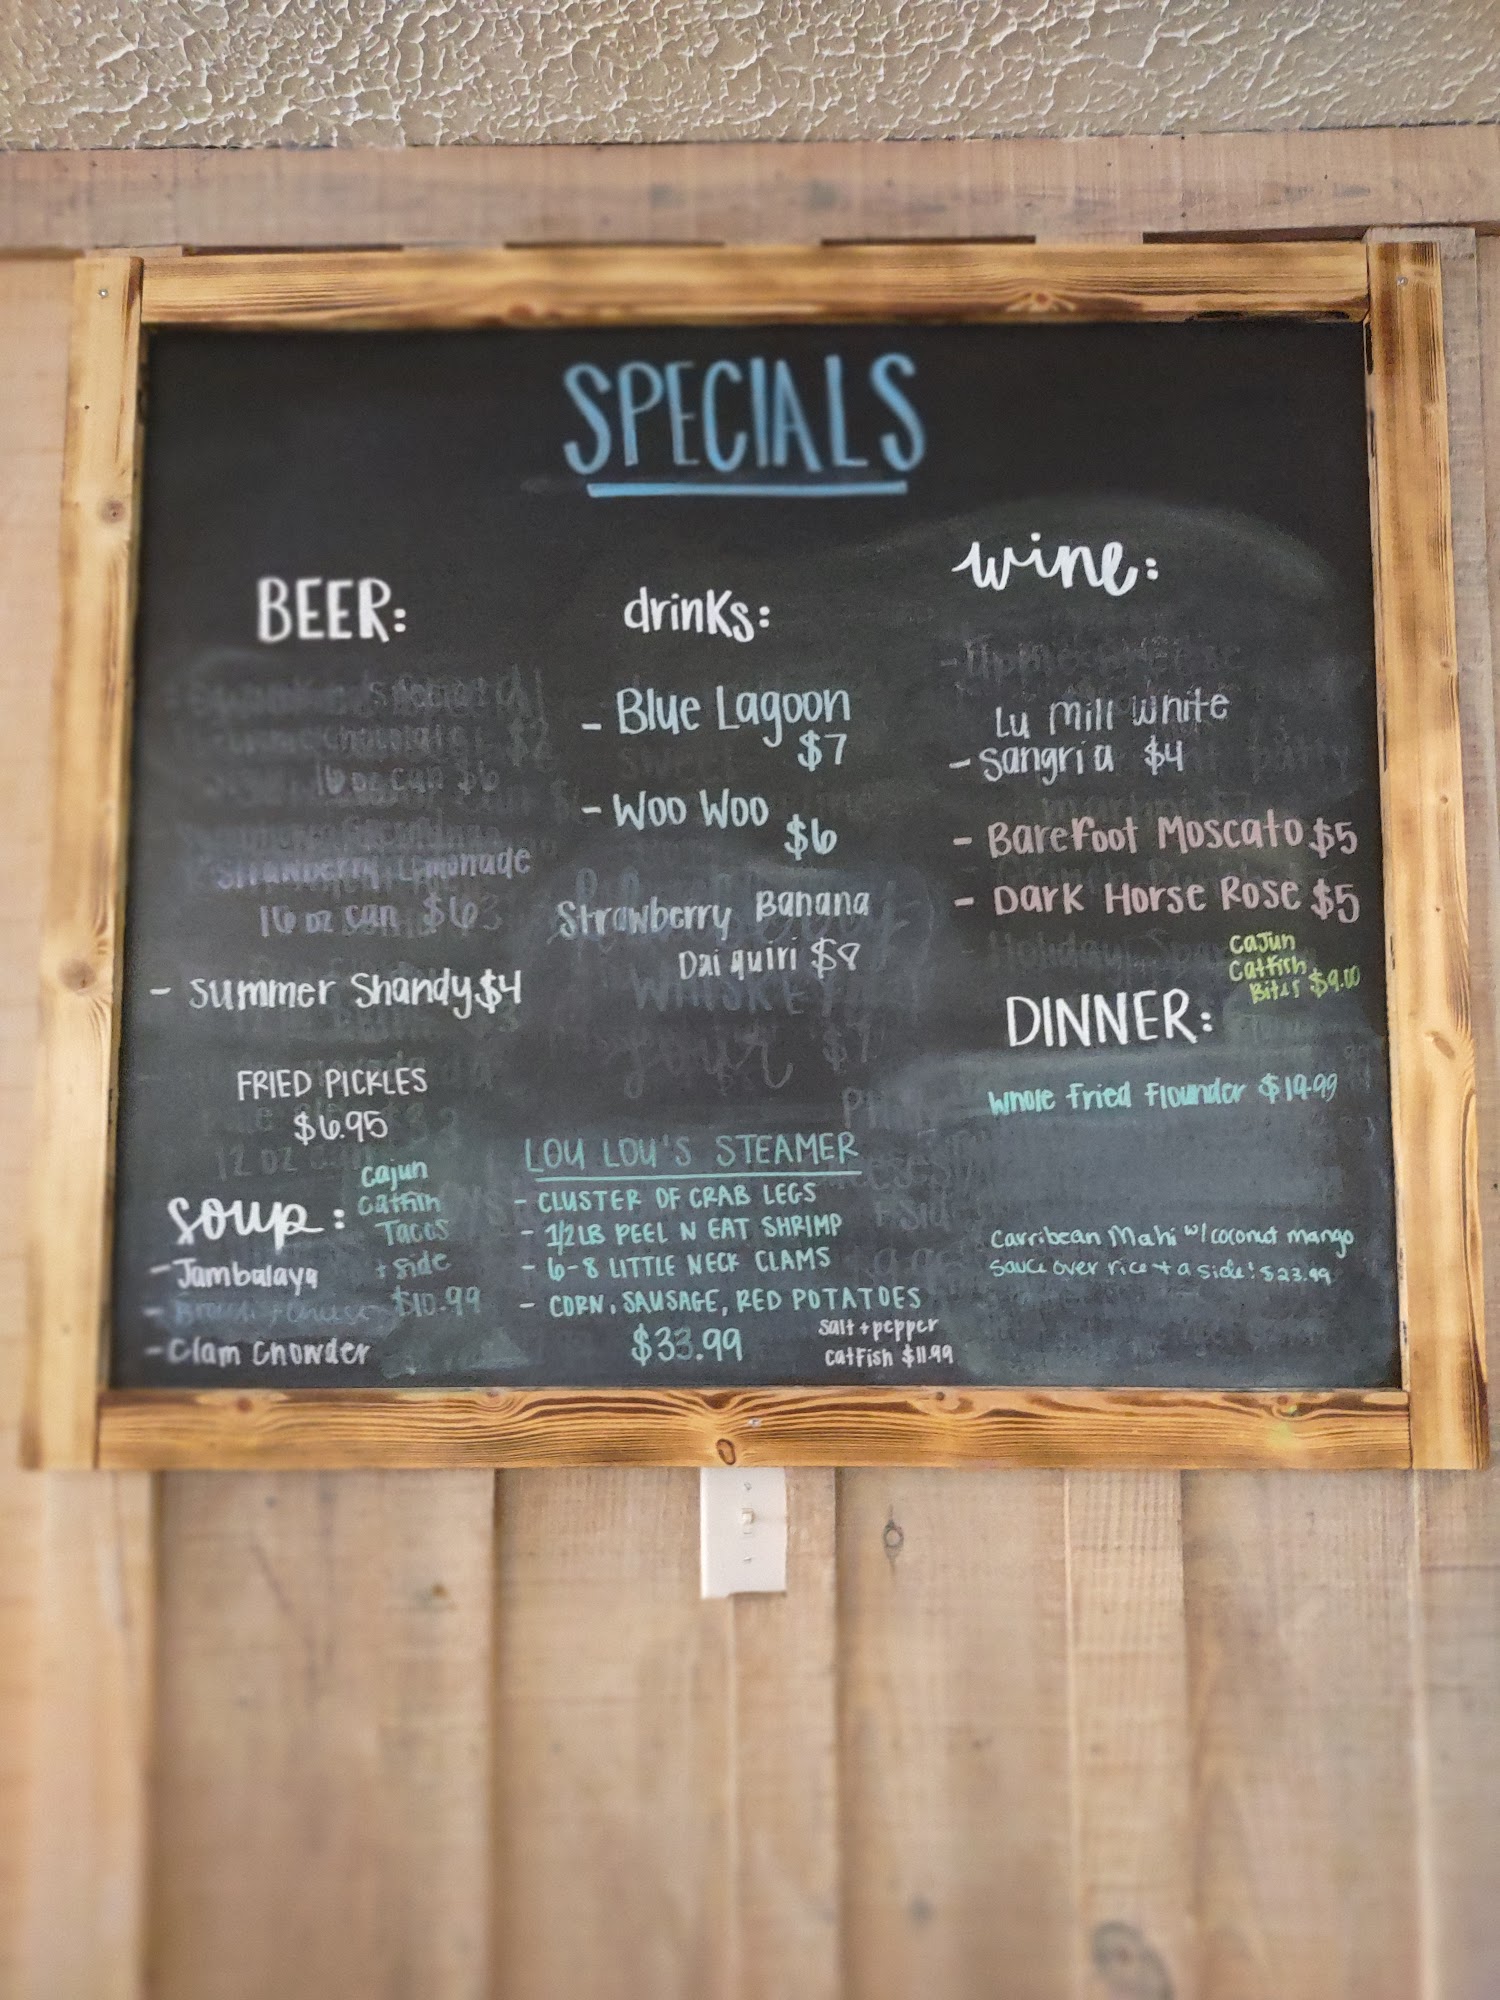 SPECIALS
BEER:
16 oz can $6
Strawberry Lemonade
16 oz can $6
- Summer Shandy $4
FRIED PICKLES
$6.95
cajun
catfish
Tacos
+ side
$10.99
soup:
- Jambalaya
- Clam Chowder
drinks:
- Blue Lagoon
$7
- Woo Woo
$6
Strawberry Banana
Daiquiri $8
WHISKEY
sour $7
LOU LOU'S STEAMER
- CLUSTER OF CRAB LEGS
- 1/2 LB PEEL N EAT SHRIMP
- 6-8 LITTLE NECK CLAMS
- CORN, SAUSAGE, RED POTATOES
$33.99
salt + pepper
catfish $11.99
wine:
Lu Mill White
- Sangria $4
- Barefoot Moscato $5
- Dark Horse Rose $5
Cajun
Catfish
Bites $9.00
DINNER:
Whole Fried Flounder $19.99
Carribean Mahi w/ coconut mango
sauce over rice + a side! $23.99